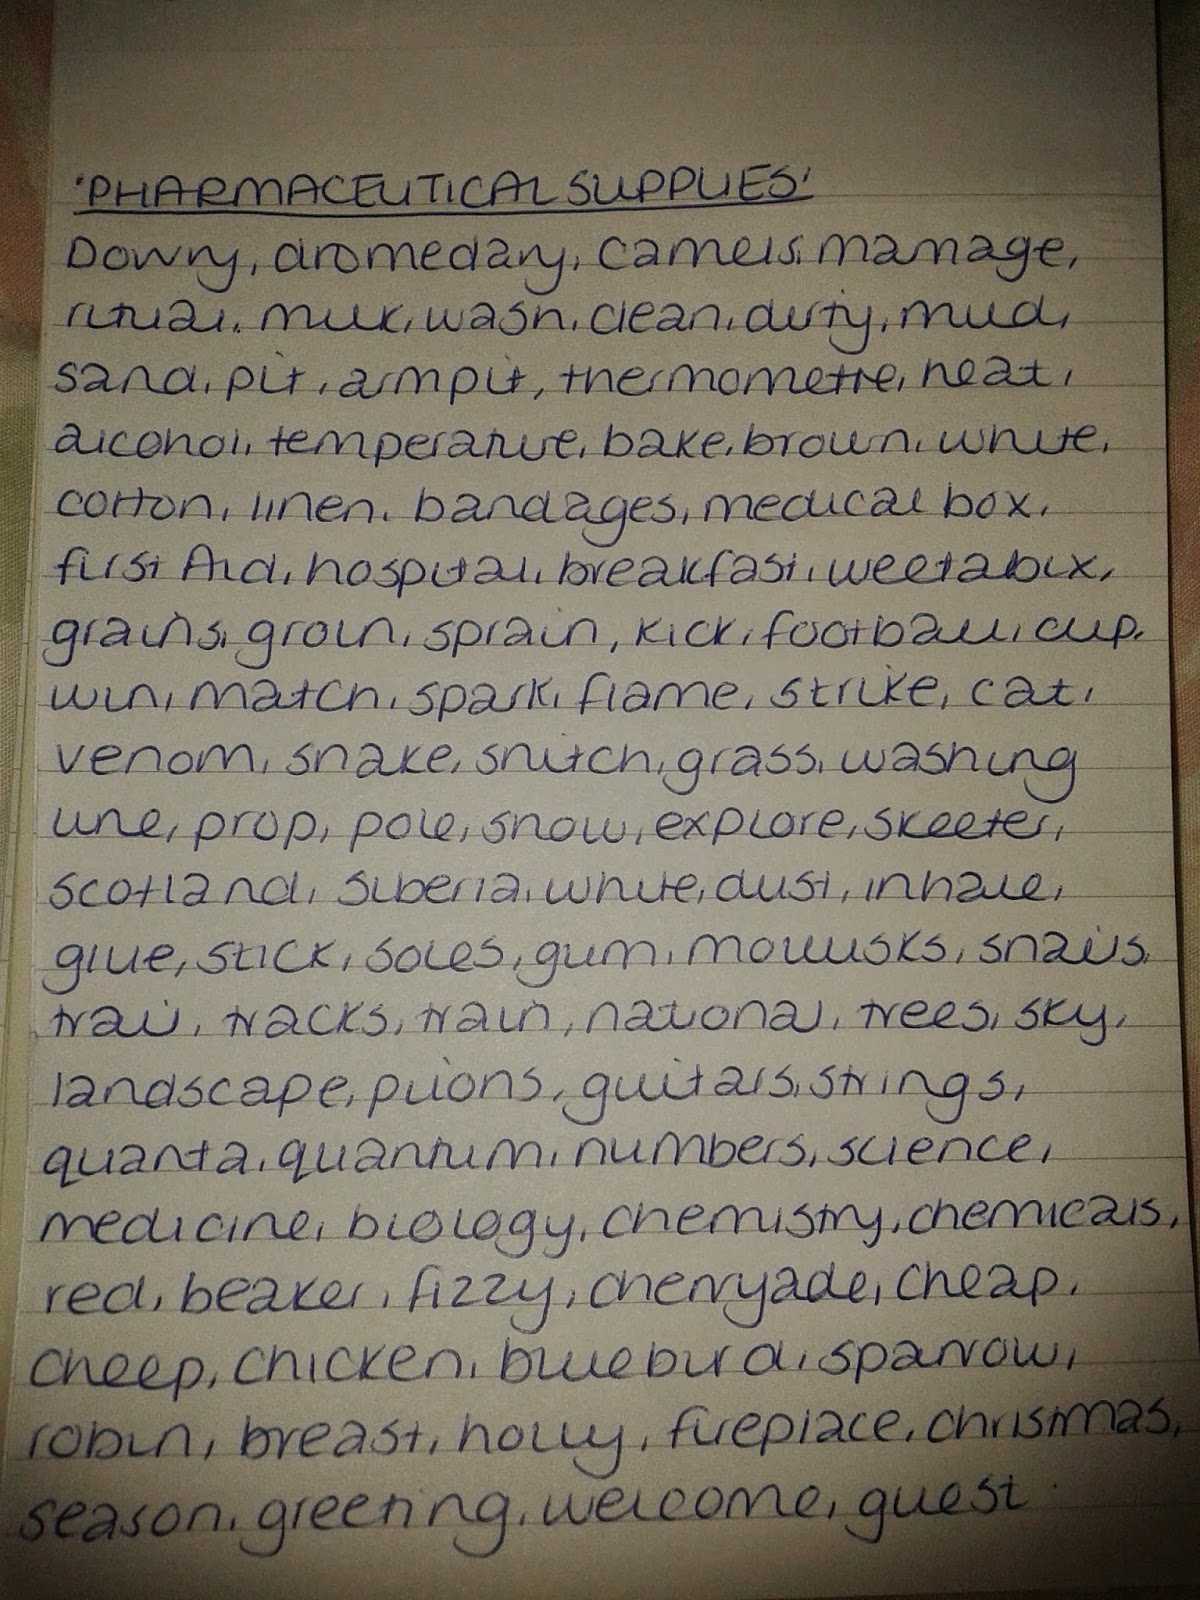 'PHARMACEUTICAL SUPPLIES'
Dowry, dromedary, camels, marriage,
ritual, milk, wash, clean, dirty, mud,
sand, pit, armpit, thermometre, heat,
alcohol, temperature, bake, brown, white,
cotton, linen, bandages, medical box,
first Aid, hospital, breakfast, weetabix,
grains, groin, sprain, kick, football, cup,
win, match, spark, flame, strike, cat,
venom, snake, snitch, grass, washing
line, prop, pole, snow, explore, skeeter,
scotland, siberia, white, dust, inhale,
glue, stick, soles, gum, mollusks, snails,
trail, tracks, train, national, trees, sky,
landscape, pilons, guitars, strings,
quanta, quantum, numbers, science,
medicine, biology, chemistry, chemicals,
red, beaker, fizzy, cherryade, cheap,
cheep, chicken, bluebird, sparrow,
robin, breast, holly, fireplace, christmas,
season, greeting, welcome, guest.